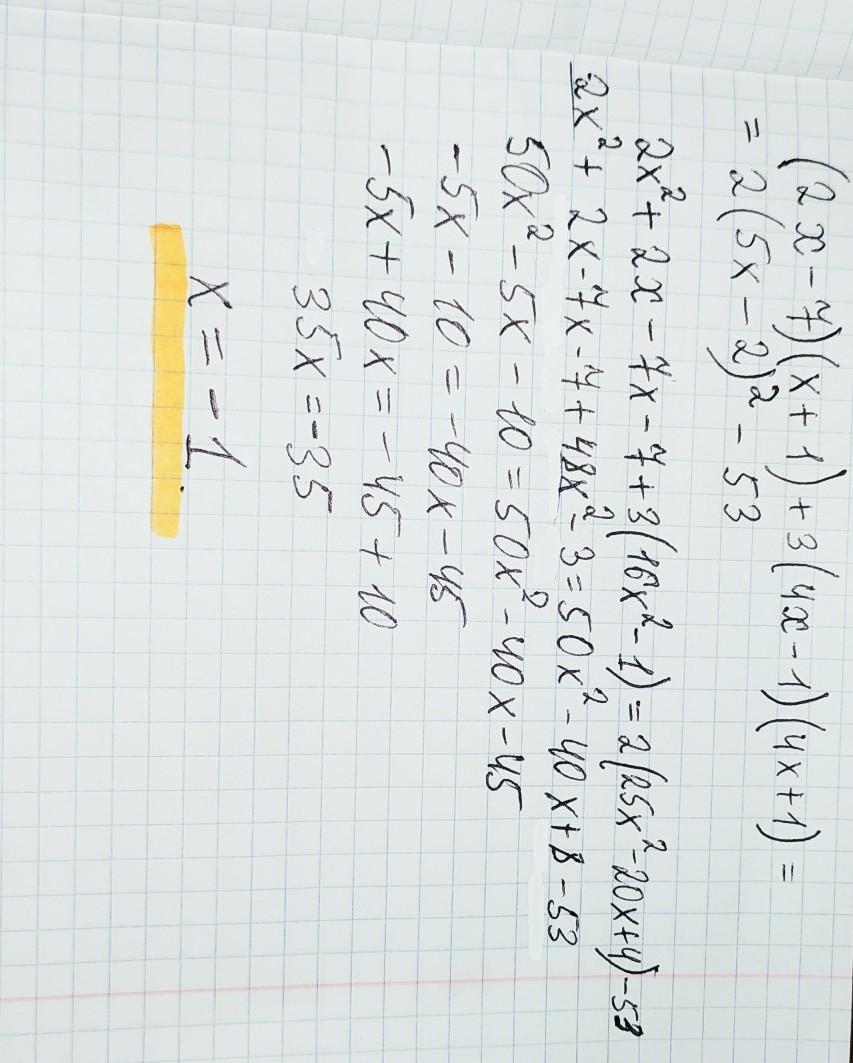 (2x-7)(x+1)+3(4x-1)(4x+1)=
=2(5x-2)²-53
2x²+2x-7x-7+3(16x²-1)=2(25x²-20x+4)-53
2x²+2x-7x-7+48x²-3=50x²-40x+8-53
50x²-5x-10=50x²-40x-45
-5x-10=-40x-45
-5x+40x=-45+10
35x=-35
x=-1.